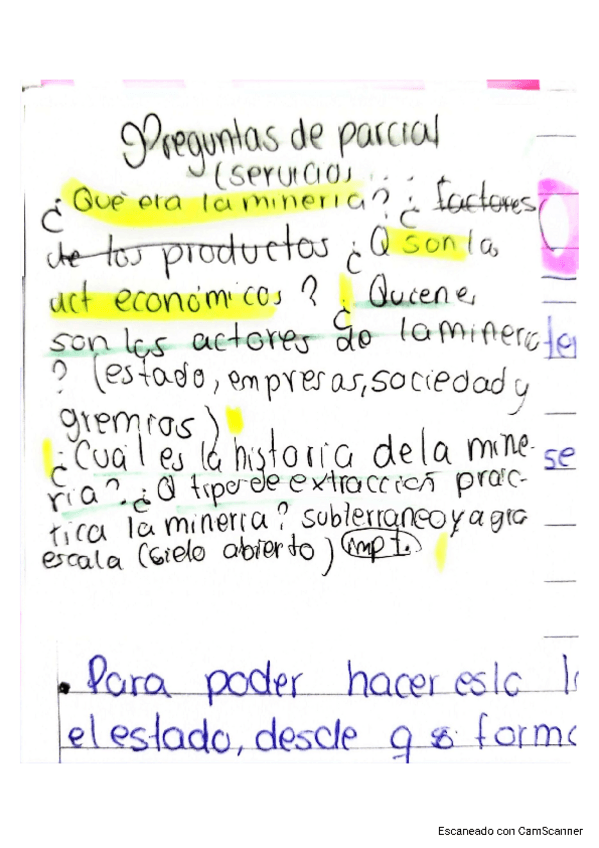 Preguntas de parcial
(servicio) ...
¿Que era la mineria? ¿ factores
de los productos ¿Q son la,
act económicas? ¿Quiene,
son los actores de la mineria
? (estado, empresas, sociedad y
gremios)
¿Cual es la historia de la mine-
ria? ¿Q tipo de extracción prac-
tica la mineria? subterraneo y a gra
escala (cielo abierto) impt.
se
• Para poder hacer esto l
el estado, desde q s forma
Escaneado con CamScanner